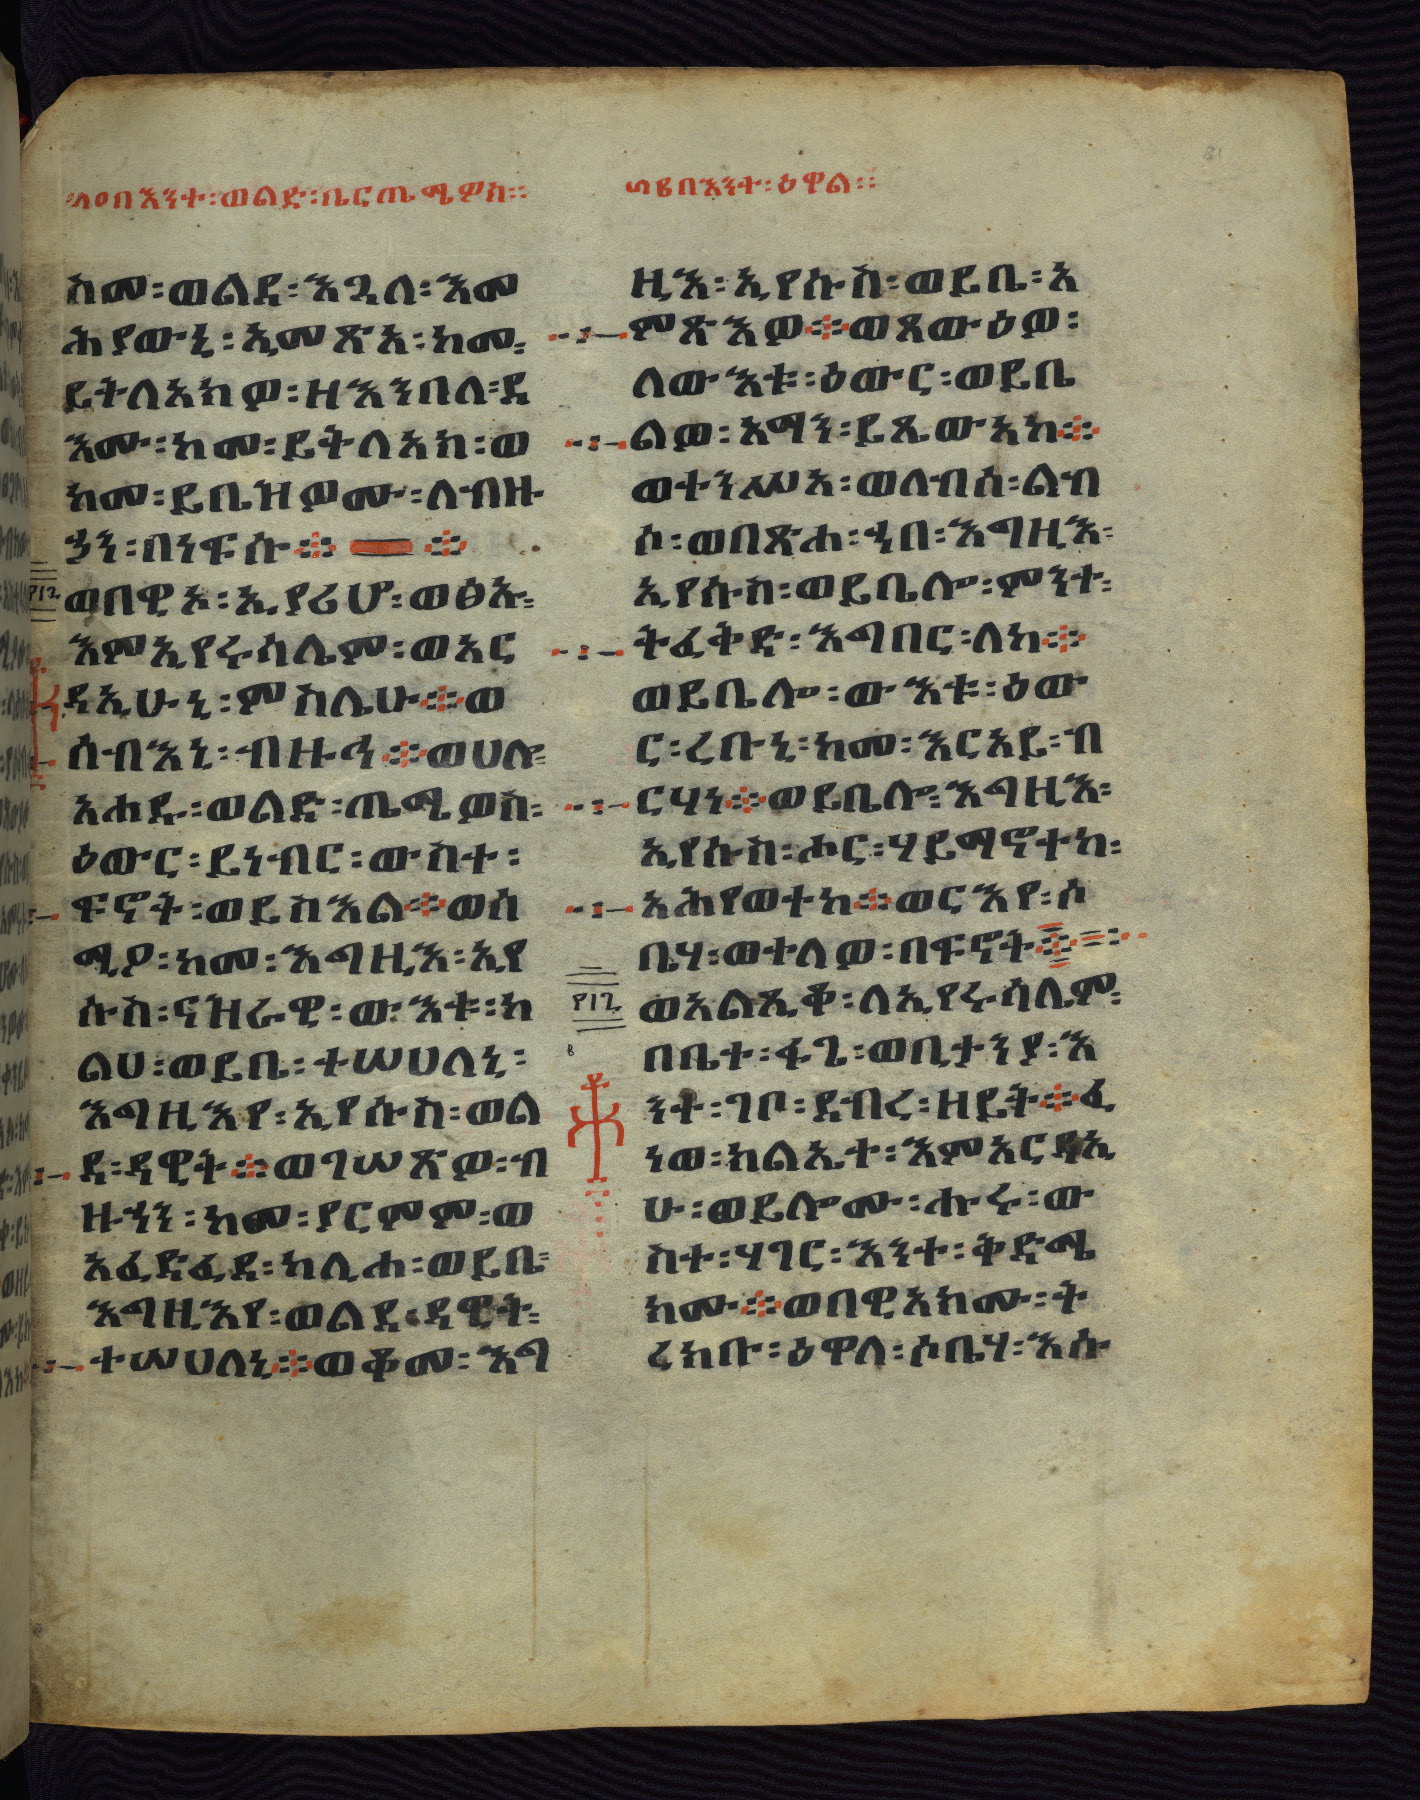 በእንተ፡ወልድ፡ቤርጤሜዎስ፡፡
በእንተ፡ዕዋል፡፡
ስመ፡ወልደ፡እጓለ፡እመ
ሕያውኒ፡ኢመጽአ፡ከመ፡
ይትለአክዎ፡ዘእንበለ፡ዳ
እሙ፡ከመ፡ይትለአክ፡ወ
ከመ፡ይቤዝዎሙ፡ለብዙ
ኃን፡በነፍሱ፨ ፨
ወበዊኦ፡ኢያሪሆ፡ወፅኡ፡
እምኢየሩሳሌም፡ወአር
ዳኢሁኒ፡ምስሌሁ፨ወ
ሰብእኒ፡ብዙኅ፨ወሀሎ፡
አሐዱ፡ወልድ፡ጤሜዎስ፡
ዕውር፡ይነብር፡ውስተ፡
ፍኖት፡ወይስእል፨ወሰ
ሚዖ፡ከመ፡እግዚእ፡ኢየ
ሱስ፡ናዝራዊ፡ውእቱ፡ከ
ልሀ፡ወይቤ፡ተሠሀለኒ፡
እግዚእየ፡ኢየሱስ፡ወል
ደ፡ዳዊት፨ወገሠጽዎ፡ብ
ዙኅን፡ከመ፡ያርምም፡ወ
አፈድፈደ፡ከሊሐ፡ወይቤ፡
እግዚእየ፡ወልደ፡ዳዊት፡
ተሠሀለኒ፨ወቆመ፡እግ
ዚእ፡ኢየሱስ፡ወይቤ፡አ
ምጽእዎ፨ወጸውዕዎ፡
ለውእቱ፡ዕውር፡ወይቤ
ልዎ፡አማን፡ይጼውአከ፨
ወተንሥአ፡ወለብሰ፡ልብ
ሶ፡ወበጽሐ፡ኀበ፡እግዚእ፡
ኢየሱስ፡ወይቤሎ፡ምንተ፡
ትፈቅድ፡እግበር፡ለከ፨
ወይቤሎ፡ውእቱ፡ዕው
ር፡ረቡኒ፡ከመ፡እርአይ፡ብ
ርሃነ፨ወይቤሎ፡እግዚእ፡
ኢየሱስ፡ሖር፡ሃይማኖተከ፡
አሕየወተከ፨ወርእየ፡ሶ
ቤሃ፡ወተለዎ፡በፍኖት፨
ወአልጺቆ፡ለኢየሩሳሌም፡
በቤተ፡ፋጌ፡ወቢታንያ፡እ
ንተ፡ገቦ፡ደብረ፡ዘይት፨ፈ
ነወ፡ክልኤተ፡እምአርዳኢ
ሁ፡ወይሎሙ፡ሑሩ፡ው
ስተ፡ሃገር፡እንተ፡ቅድሜ
ክሙ፨ወበዊአክሙ፡ት
ረክቡ፡ዕዋለ፡ሶቤሃ፡እሱ